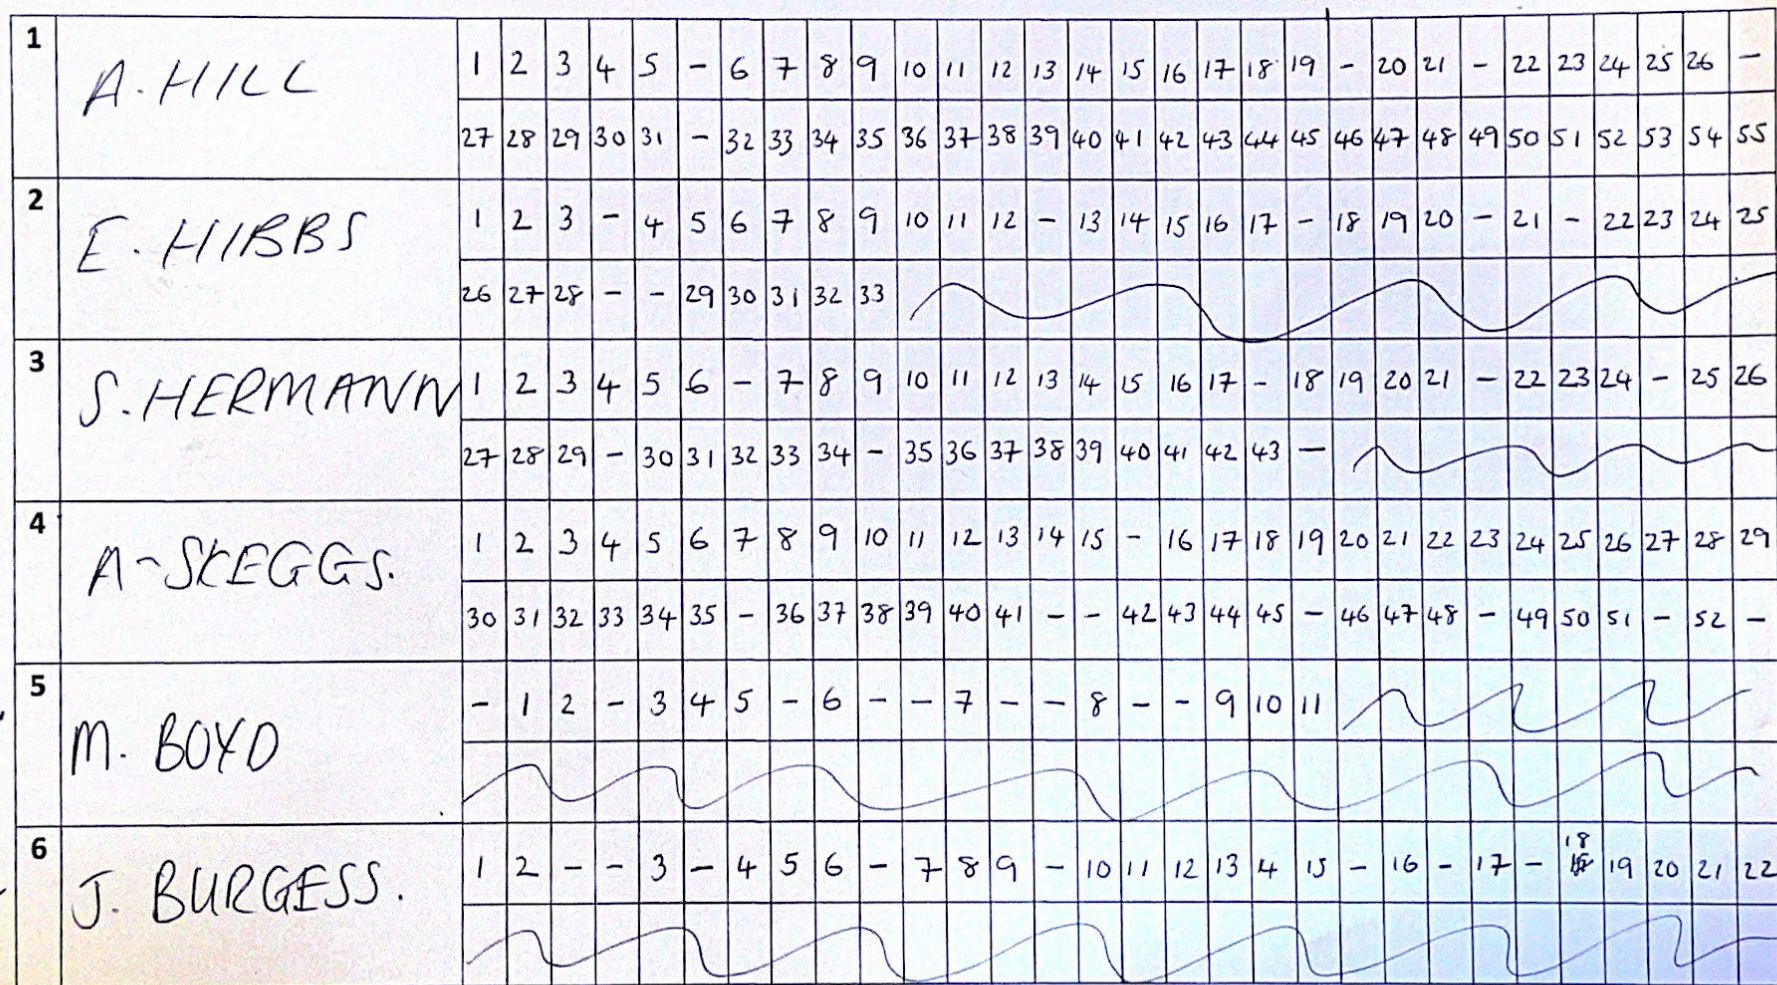 1 A. HILL 1 2 3 4 5 - 6 7 8 9 10 11 12 13 14 15 16 17 18 19 - 20 21 - 22 23 24 25 26 -
27 28 29 30 31 - 32 33 34 35 36 37 38 39 40 41 42 43 44 45 46 47 48 49 50 51 52 53 54 55
2 E. HIBBS 1 2 3 - 4 5 6 7 8 9 10 11 12 - 13 14 15 16 17 - 18 19 20 - 21 - 22 23 24 25
26 27 28 - - 29 30 31 32 33
3 S. HERMANN 1 2 3 4 5 6 - 7 8 9 10 11 12 13 14 15 16 17 - 18 19 20 21 - 22 23 24 - 25 26
27 28 29 - 30 31 32 33 34 - 35 36 37 38 39 40 41 42 43 -
4 A-SKEGGS. 1 2 3 4 5 6 7 8 9 10 11 12 13 14 15 - 16 17 18 19 20 21 22 23 24 25 26 27 28 29
30 31 32 33 34 35 - 36 37 38 39 40 41 - - 42 43 44 45 - 46 47 48 - 49 50 51 - 52 -
5 M. BOYD - 1 2 - 3 4 5 - 6 - - 7 - - 8 - - 9 10 11
6 J. BURGESS. 1 2 - - 3 - 4 5 6 - 7 8 9 - 10 11 12 13 14 15 - 16 - 17 - 18 19 20 21 22